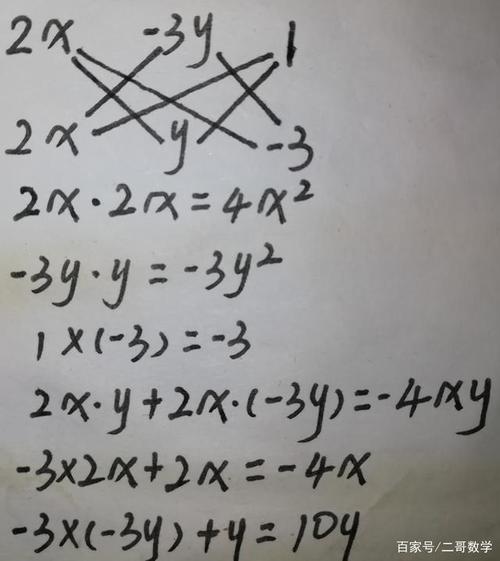 2x -3y 1
2x y -3
2x·2x=4x²
-3y·y=-3y²
1×(-3)=-3
2x·y+2x·(-3y)=-4xy
-3×2x+2x=-4x
-3×(-3y)+y=10y
百家号/二哥数学